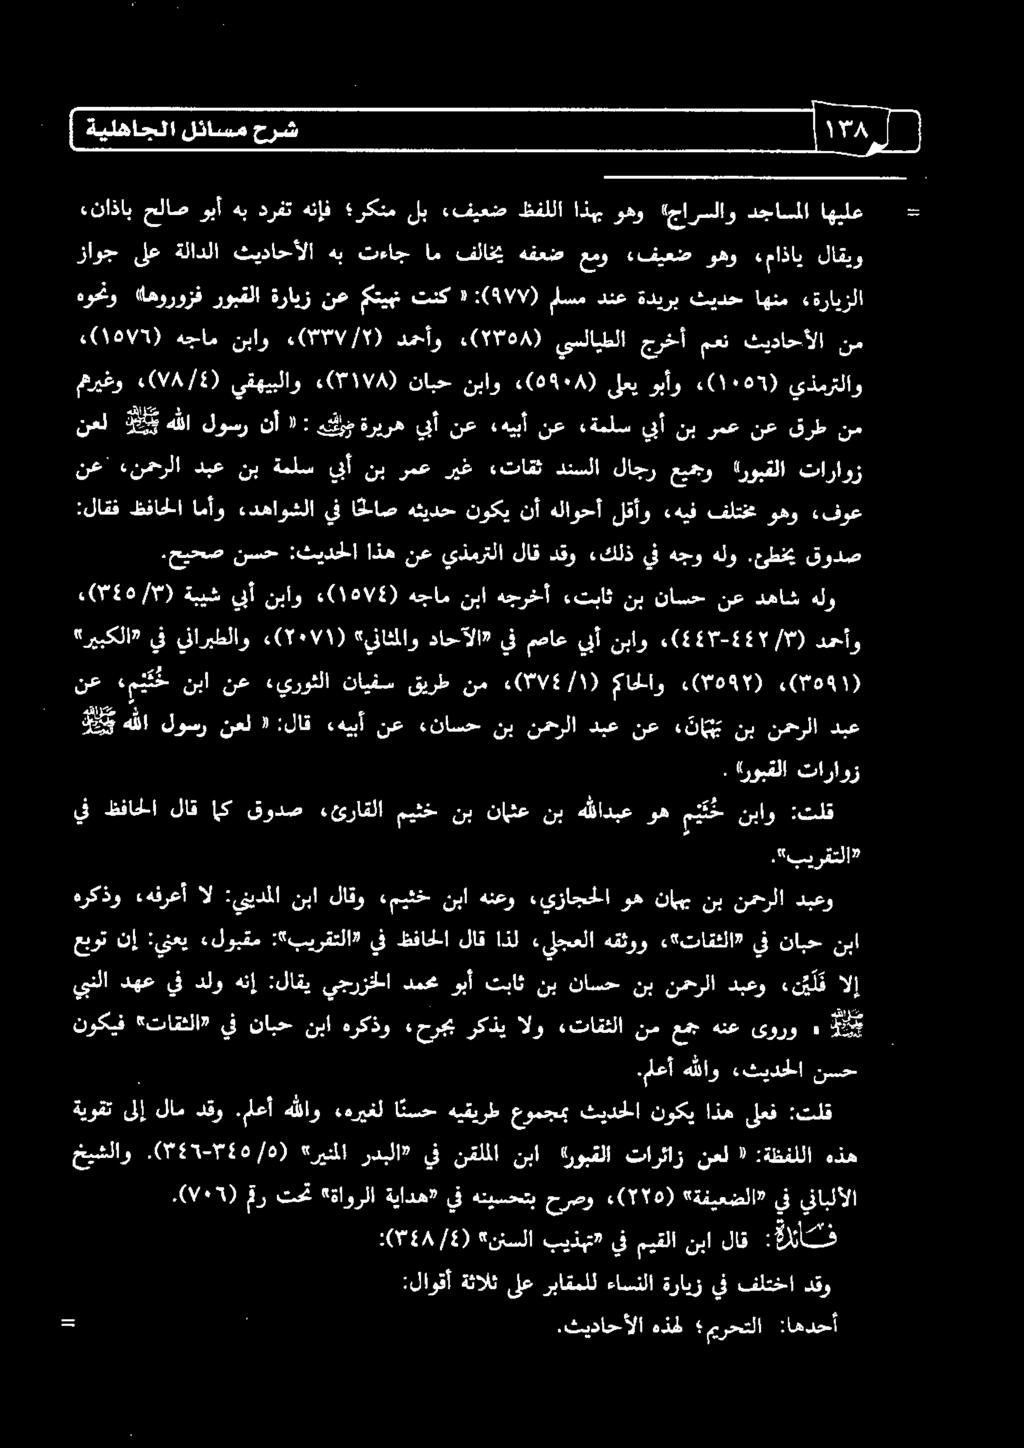 ١٣٨
شرح مسائل الجاهلية
= عليها المساجد والسراج» وهو بهذا اللفظ ضعيف، بل منكر؛ فإنه تفرد به أبو صالح باذان،
ويقال باذام، وهو ضعيف، ومع ضعفه يخالف ما جاءت به الأحاديث الدالة على جواز
الزيارة، منها حديث بريدة عند مسلم (٩٧٧): «كنت نهيتكم عن زيارة القبور فزوروها» ونحوه
من الأحاديث نعم أخرج الطيالسي (٢٣٥٨)، وأحمد (٣٣٧/٢)، وابن ماجه (١٥٧٦)،
والترمذي (١٠٥٦)، وأبو يعلى (٥٩٠٨)، وابن حبان (٣١٧٨)، والبيهقي (٧٨/٤)، وغيرهم
من طرق عن عمر بن أبي سلمة، عن أبيه، عن أبي هريرة رضي الله عنه: «أن رسول الله ﷺ لعن
زوارات القبور» وجميع رجال السند ثقات، غير عمر بن أبي سلمة بن عبد الرحمن، عن
عوف، وهو مختلف فيه، وأقل أحواله أن يكون حديثه صالحًا في الشواهد، وأما الحافظ فقال:
صدوق يخطئ. وله وجه في ذلك، وقد قال الترمذي عن هذا الحديث: حسن صحيح.
وله شاهد عن حسان بن ثابت، أخرجه ابن ماجه (١٥٧٤)، وابن أبي شيبة (٣٤٥/٣)،
وأحمد (٤٤٢/٣-٤٤٣)، وابن أبي عاصم في «الآحاد والمثاني» (٢٠٧١)، والطبراني في «الكبير»
(٣٥٩١)، (٣٥٩٢)، والحاكم (٣٧٤/١)، من طريق سفيان الثوري، عن ابن خُثَيْم، عن
عبد الرحمن بن بَهْمَانَ، عن عبد الرحمن بن حسان، عن أبيه، قال: «لعن رسول الله ﷺ
زوارات القبور».
قلت: وابن خُثَيْم هو عبدالله بن عثمان بن خثيم القارئ، صدوق كما قال الحافظ في
«التقريب».
وعبد الرحمن بن بهمان هو الحجازي، وعنه ابن خثيم، وقال ابن المديني: لا أعرفه، وذكره
ابن حبان في «الثقات»، ووثقه العجلي، لذا قال الحافظ في «التقريب»: مقبول، يعني: إن توبع
إلا فَلَيِّن، وعبد الرحمن بن حسان بن ثابت أبو محمد الخزرجي يقال: إنه ولد في عهد النبي
ﷺ وروى عنه جمع من الثقات، ولا يذكر بجرح، وذكره ابن حبان في «الثقات» فيكون
حسن الحديث، والله أعلم.
قلت: فعلى هذا يكون الحديث بمجموع طريقيه حسنًا لغيره، والله أعلم. وقد لام إلى تقوية
هذه اللفظة: «لعن زائرات القبور» ابن الملقن في «البدر المنير» (٣٤٥/٥-٣٤٦). والشيخ
الألباني في «الضعيفة» (٢٢٥)، وصرح بتحسينه في «هداية الرواة» تحت رقم (٧٠٦).
فائدة: قال ابن القيم في «تهذيب السنن» (٣٤٨/٤):
وقد اختلف في زيارة النساء للمقابر على ثلاثة أقوال:
أحدها: التحريم؛ لهذه الأحاديث. =